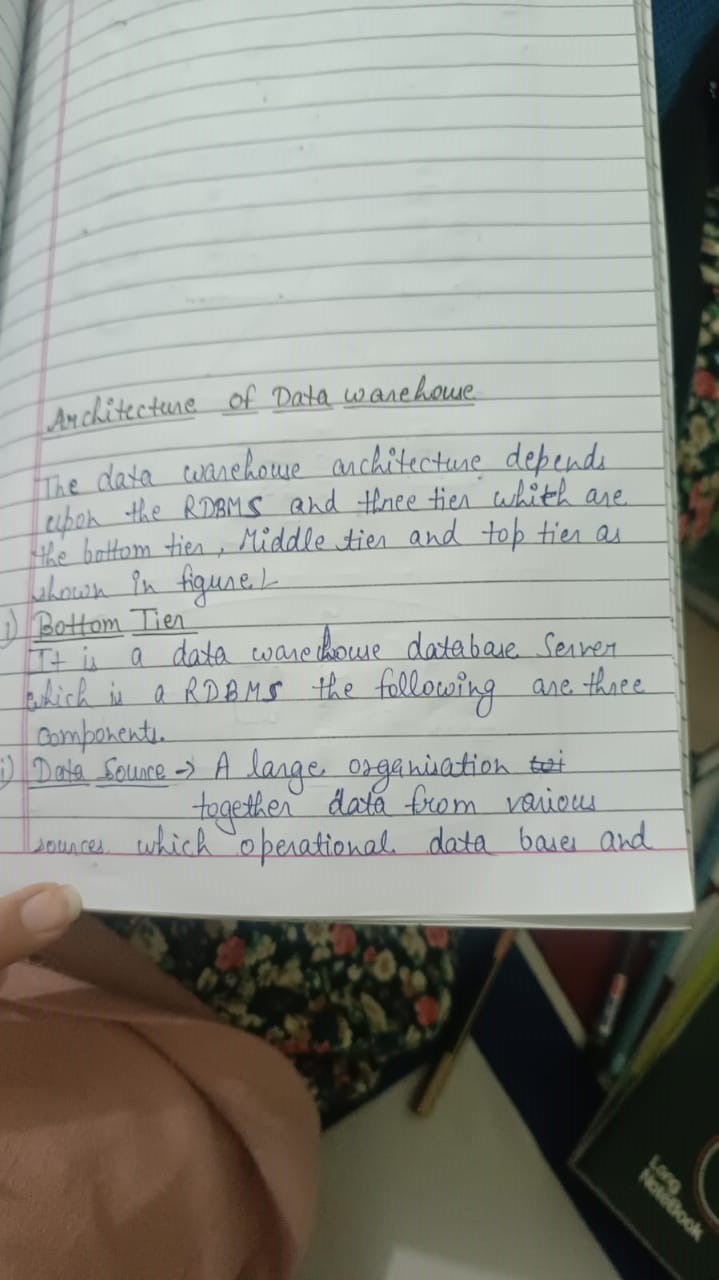 Architecture of Data warehouse
The data warehouse architecture depends
upon the RDBMS and three tier which are
the bottom tier, Middle tier and top tier as
shown in figure1
i) Bottom Tier
It is a data warehouse database Server
which is a RDBMS the following are three
components.
i) Data Source → A large organisation
together data from various
sources which operational data bases and
Long
NoteBook